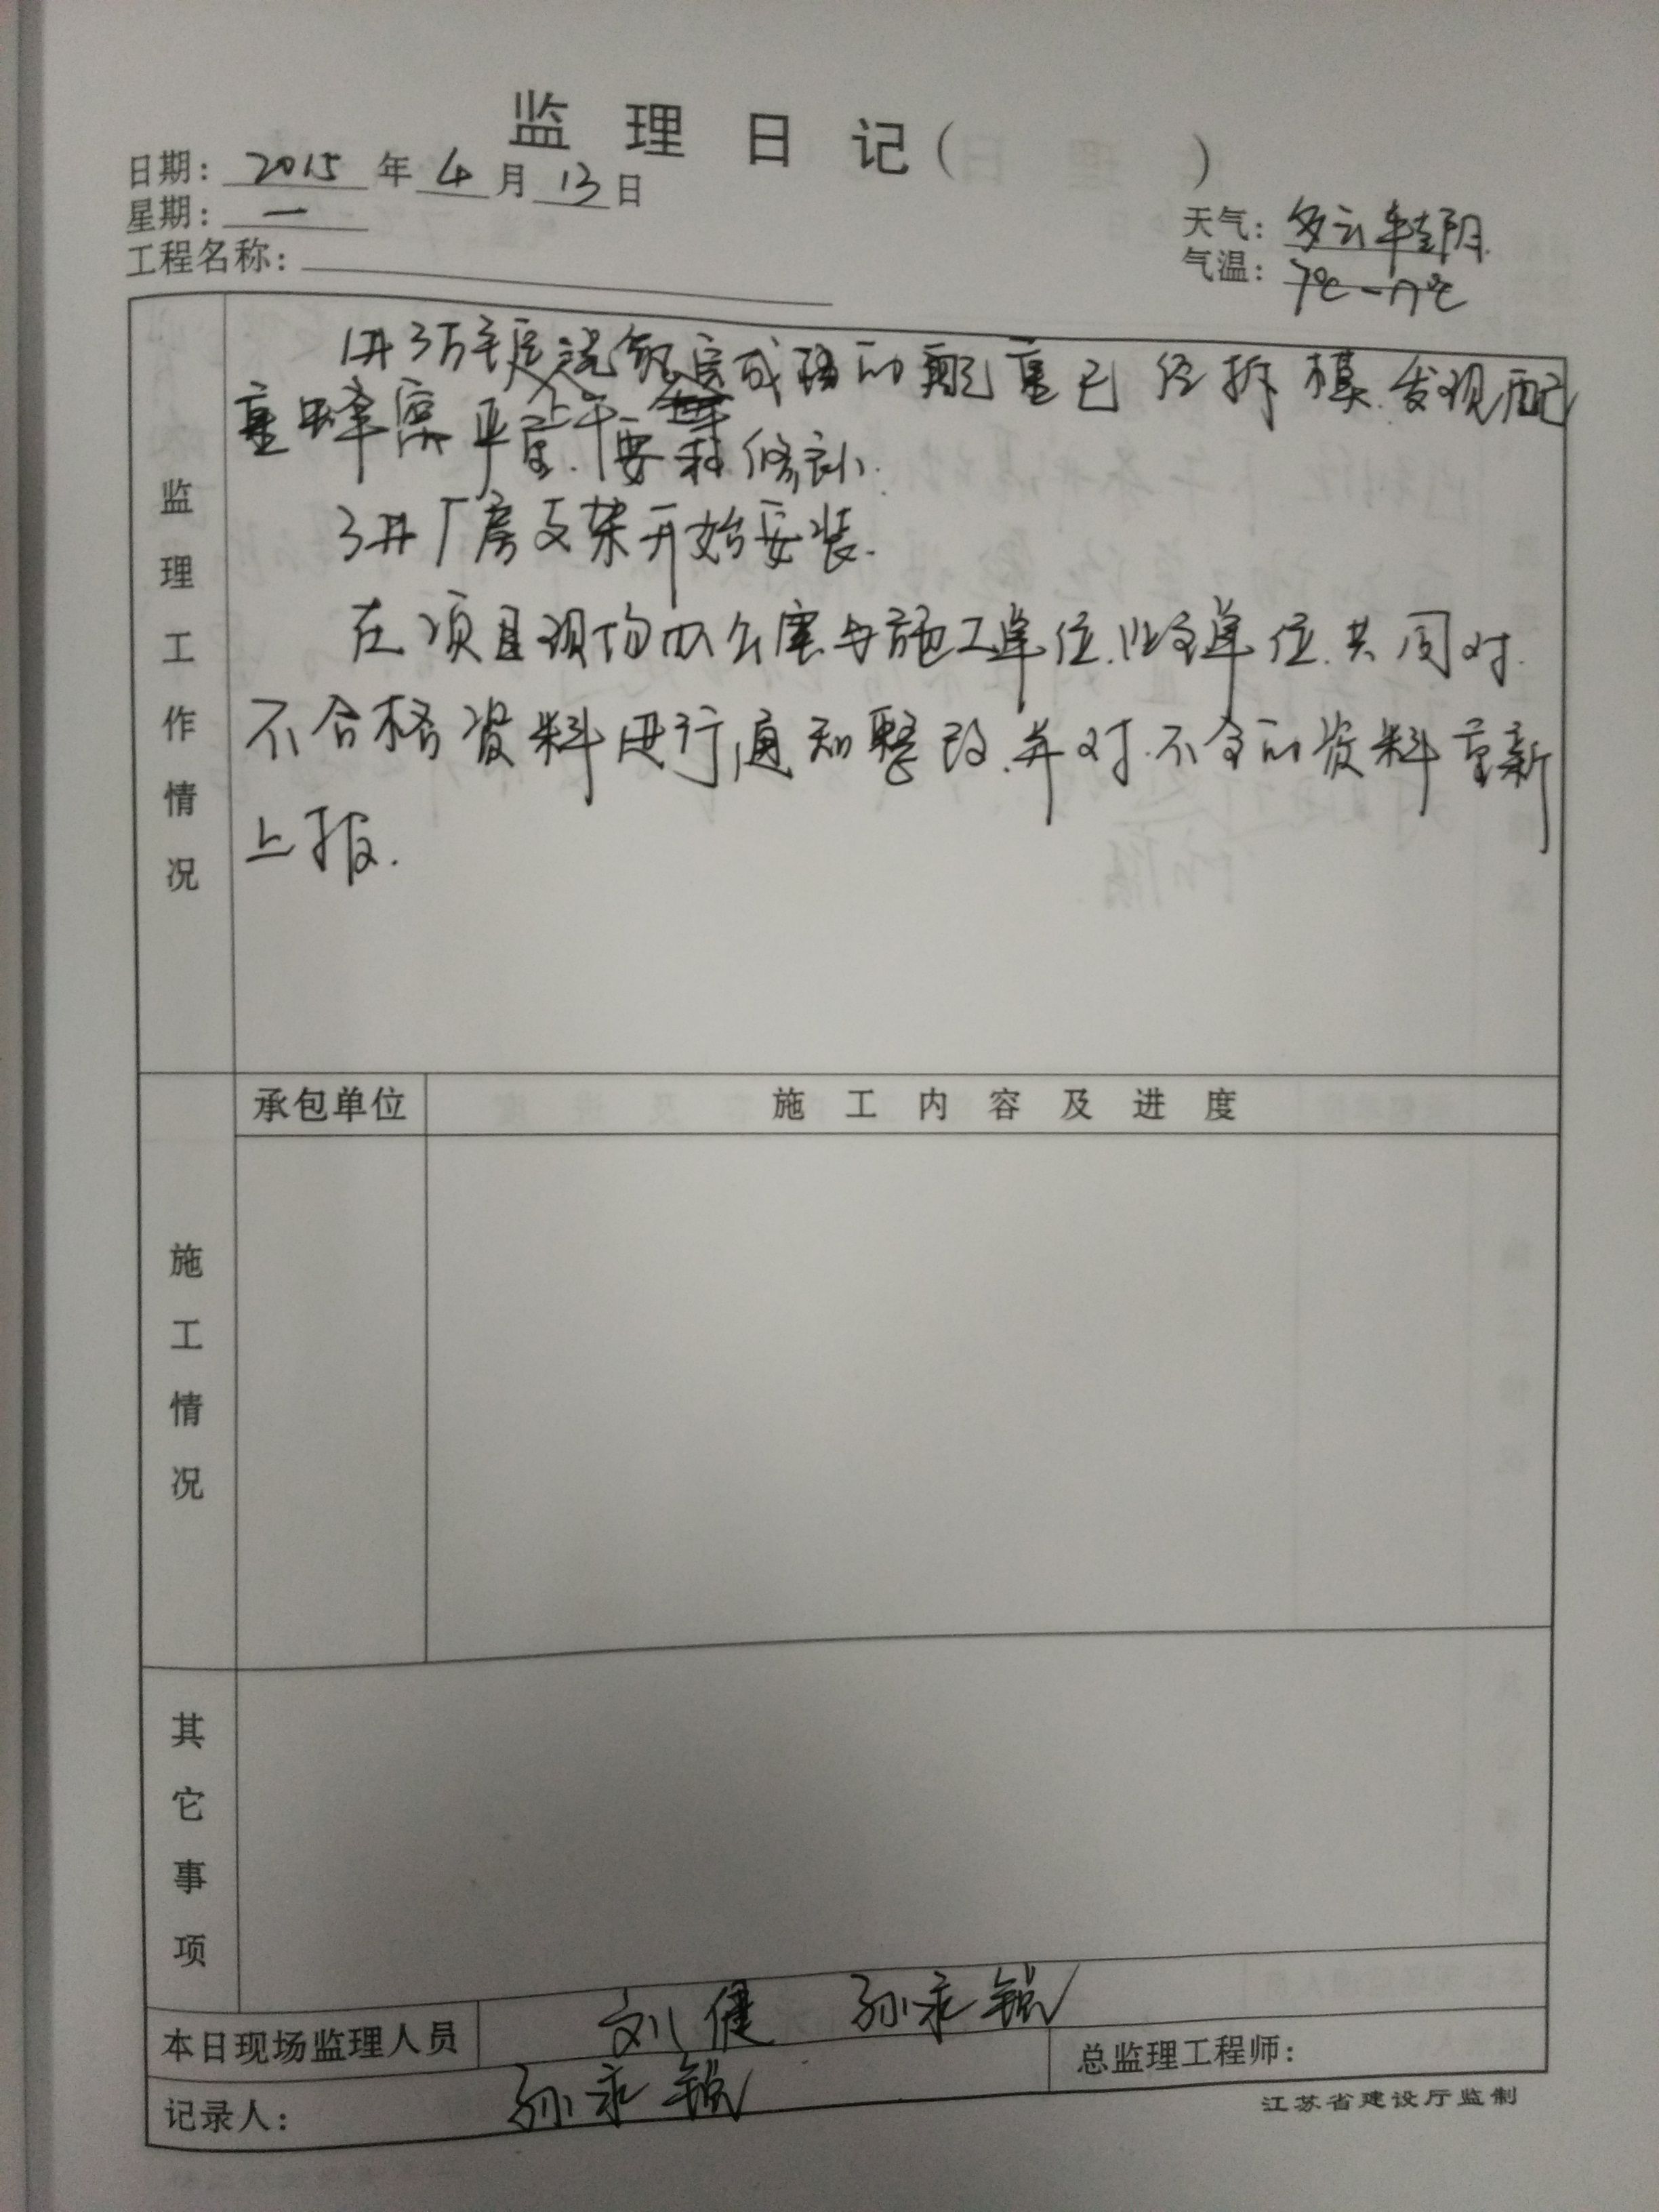 监理日记( )
日期: 2015 年 4 月 13 日
星期: 一
天气: 多云转阴
工程名称:
气温: 7℃-17℃
监理工作情况
1# 3万 屋 浇筑完成 的配重已经拆模.发现配
重蜂窝严重. 要 修补.
3#厂房支架开始安装.
在项目现场办公室与施工单位. 单位.共同对.
不合格资料进行通知整改.并对.不全的资料重新
上报.
承包单位 施工内容及进度
施工情况
其它事项
本日现场监理人员 刘健 孙永锐
总监理工程师:
记录人: 孙永锐
江苏省建设厅监制